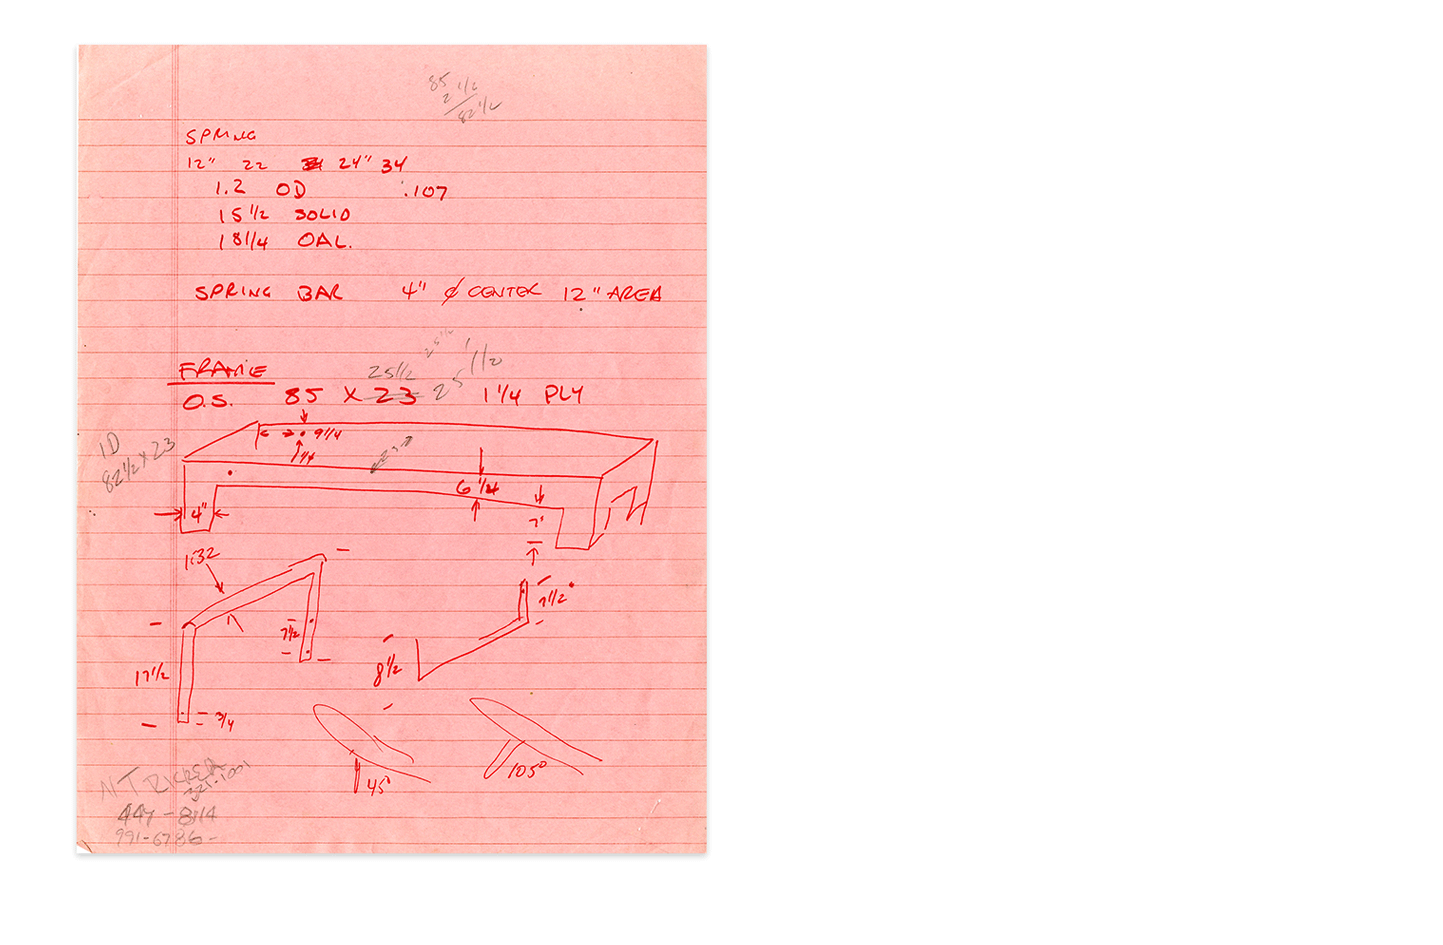 85
2 1/2
82 1/2
SPRING
12" 22 24" 34
1.2 OD .107
15 1/2 SOLID
18 1/4 OAL.
SPRING BAR 4" ¢ CENTER 12" AREA
25 1/2
FRAME
25 1/2 25 1/2
O.S. 85 X 23 1 1/4 PLY
ID
82 1/2 X 23
9 1/4
23
6 1/4
4"
7"
1.32
7 1/2"
7 1/2
8 1/2
17 1/2
3/4
45°
105°
321-1001
447-8114
991-6786-